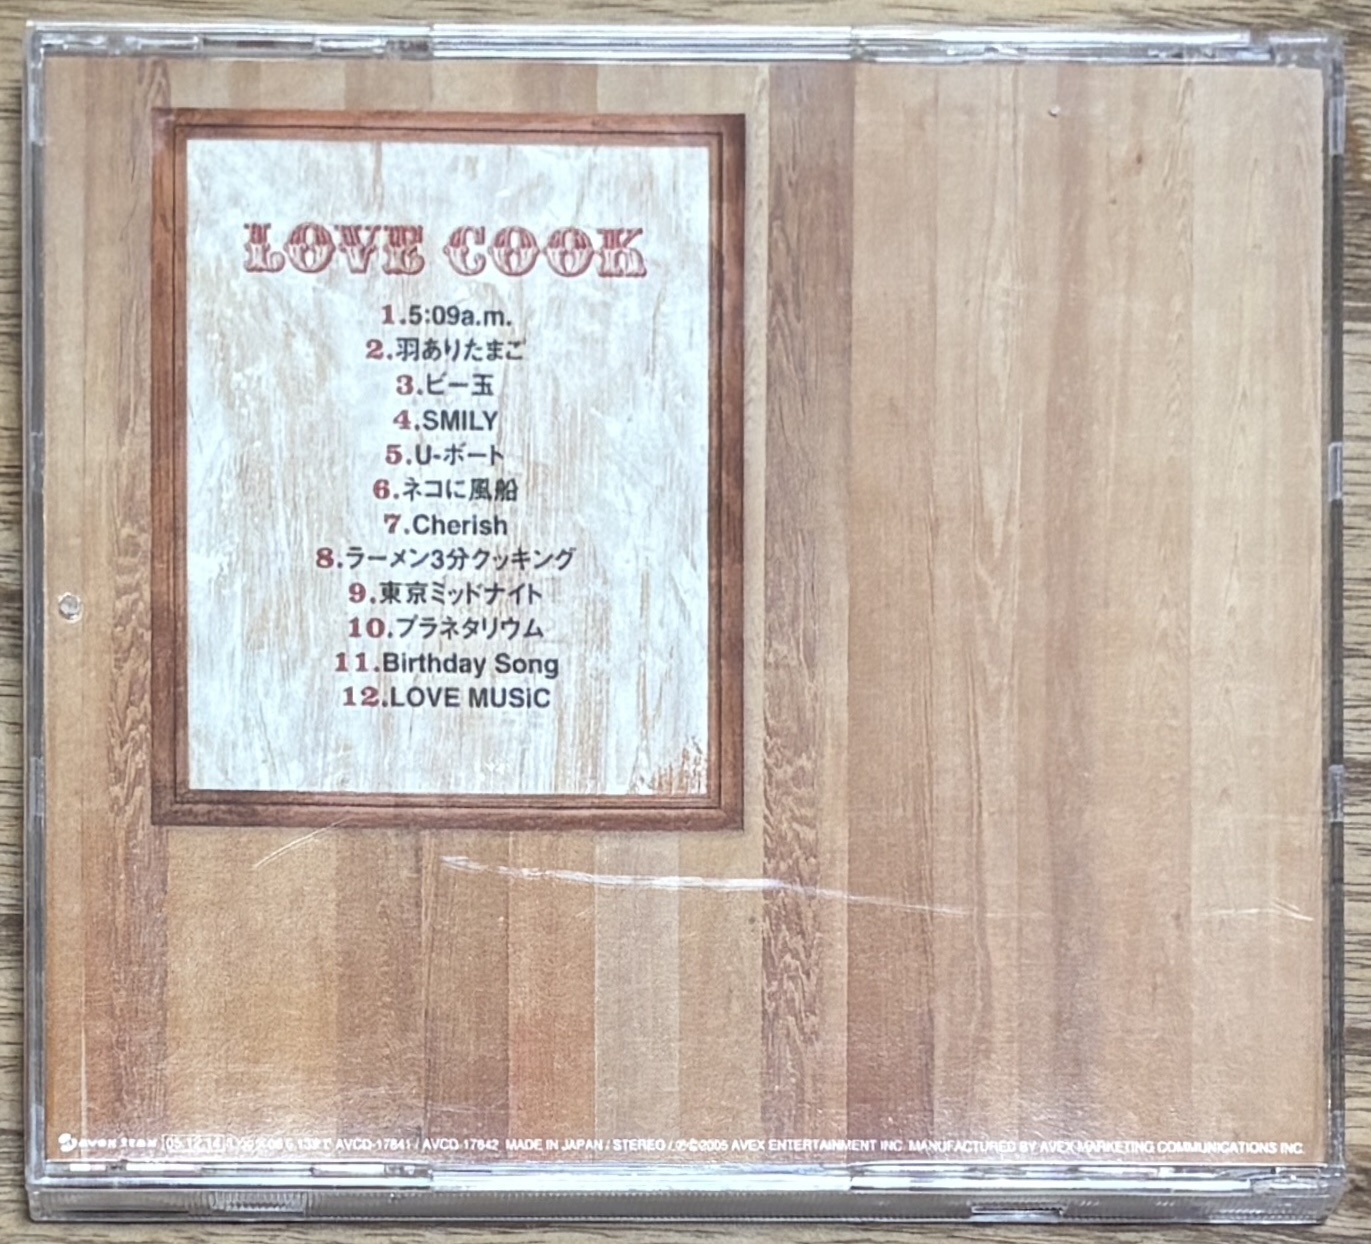 LOVE COOK
1.5:09a.m.
2.羽ありたまご
3.ビー玉
4.SMILY
5.U-ボート
6.ネコに風船
7.Cherish
8.ラーメン3分クッキング
9.東京ミッドナイト
10.プラネタリウム
11.Birthday Song
12.LOVE MUSiC
avex trax 05.12.14 AVCD-17841 / AVCD-17842 MADE IN JAPAN / STEREO / ℗©2005 AVEX ENTERTAINMENT INC. MANUFACTURED BY AVEX MARKETING COMMUNICATIONS INC.